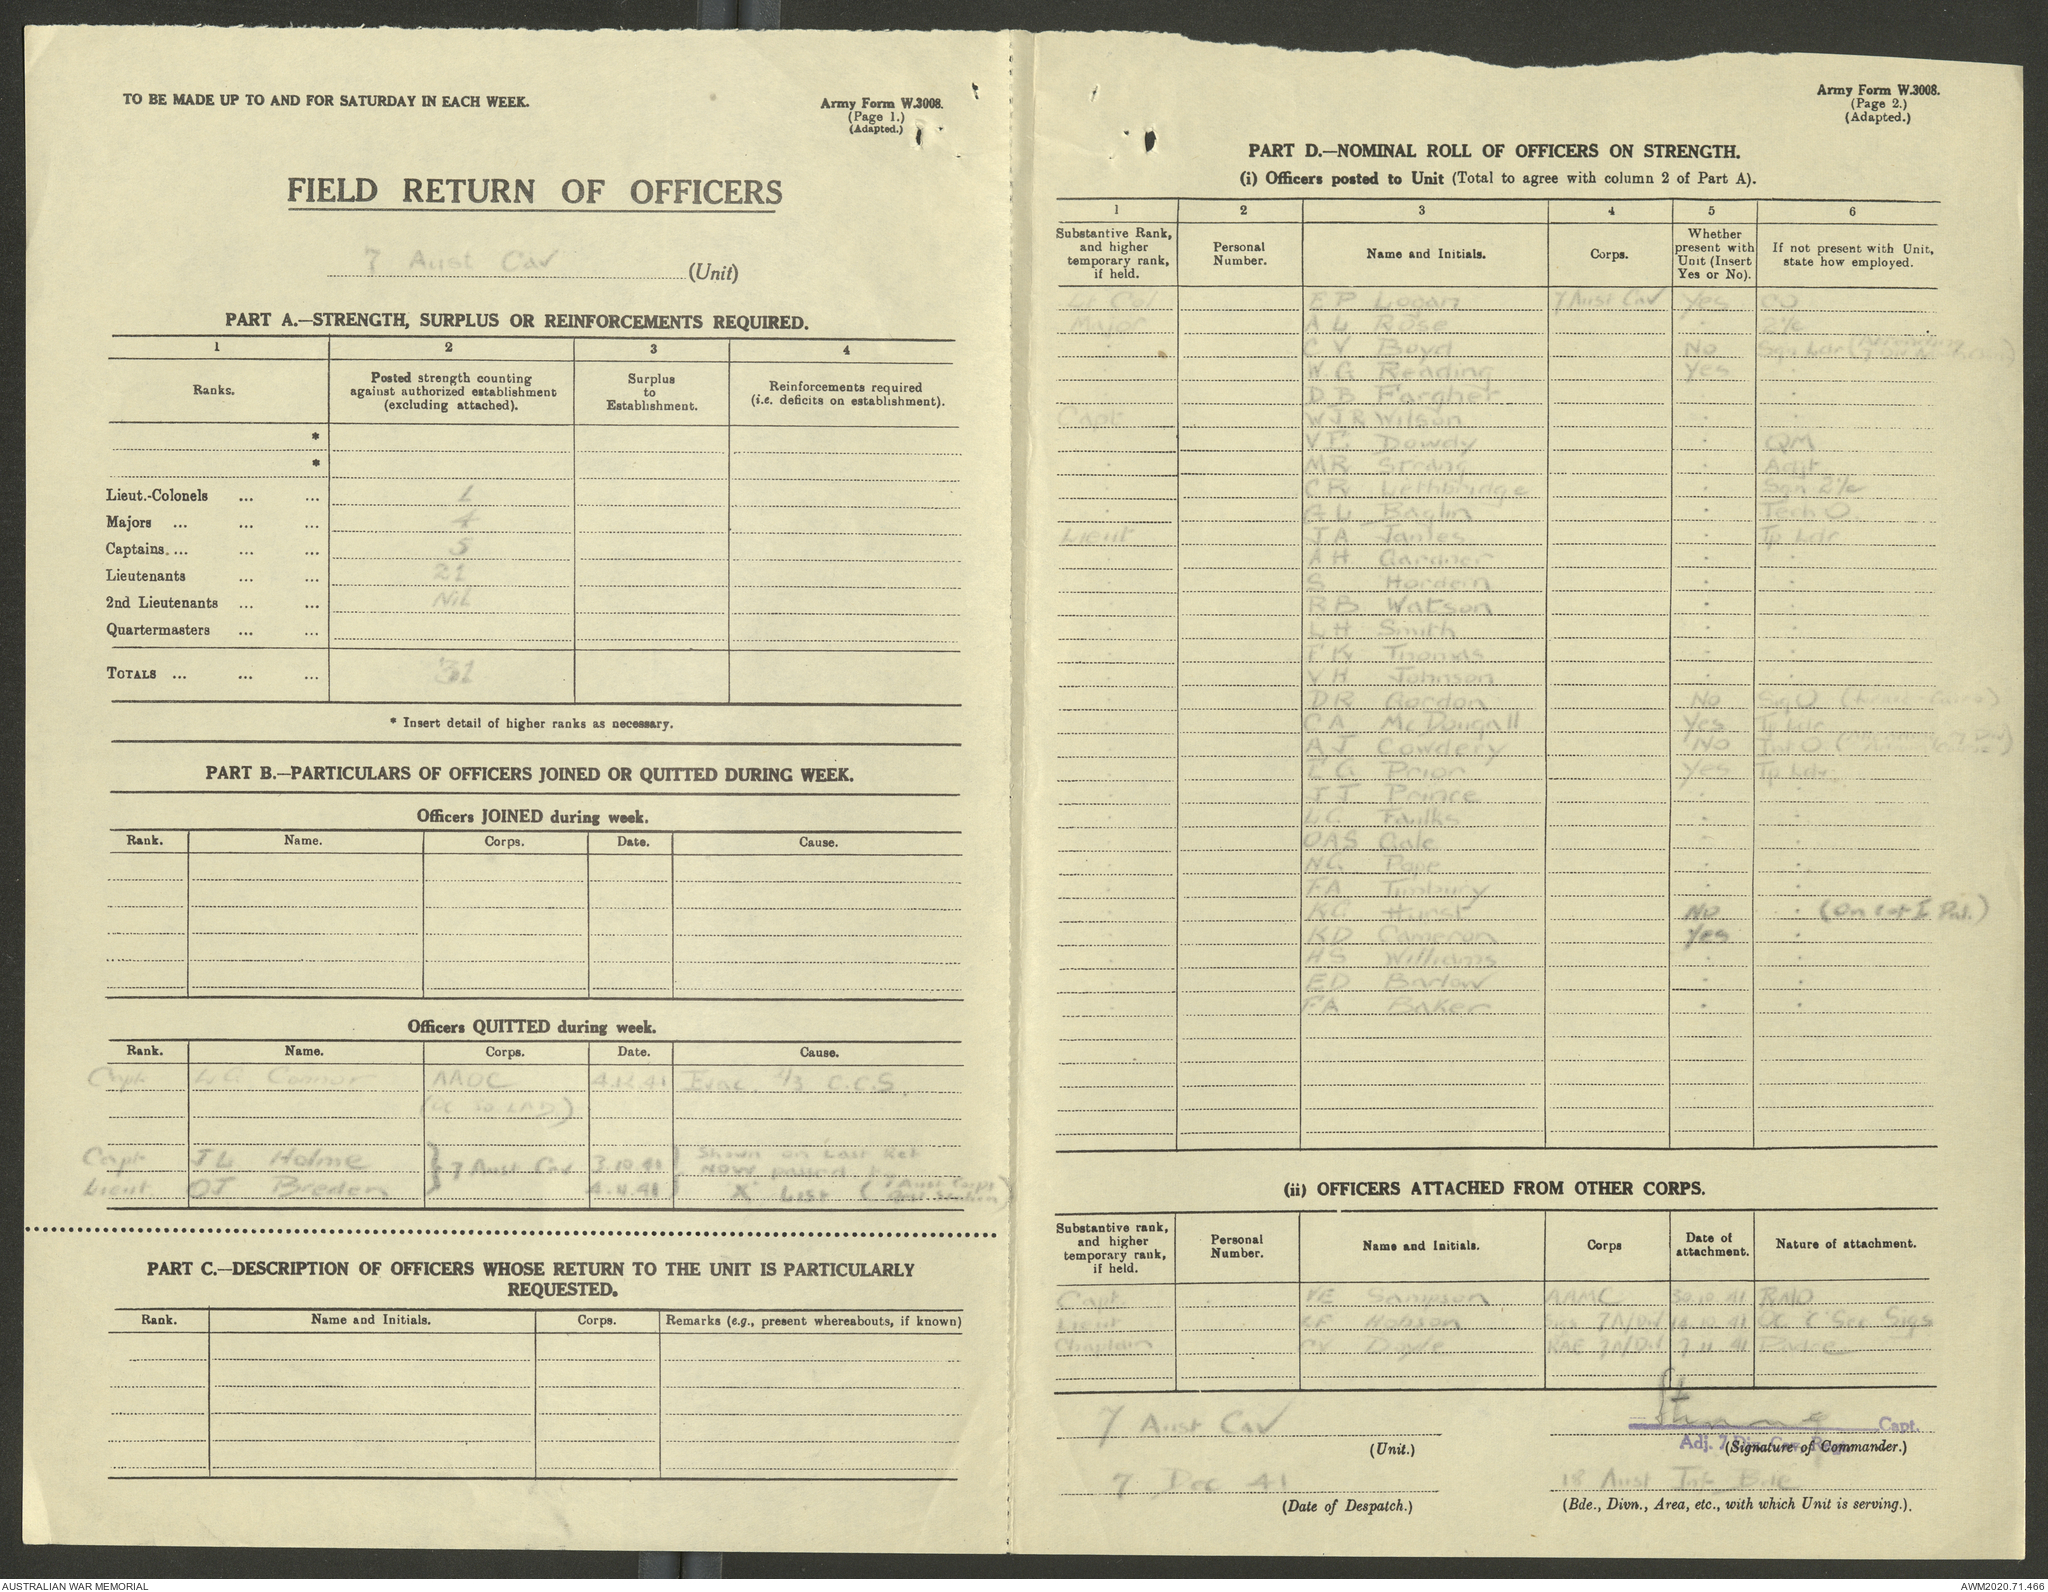 TO BE MADE UP TO AND FOR SATURDAY IN EACH WEEK.
Army Form W.3008.
(Page 1.)
(Adapted.)
FIELD RETURN OF OFFICERS
7 Aust Cav (Unit)
PART A.—STRENGTH, SURPLUS OR REINFORCEMENTS REQUIRED.
1 2 3 4
Ranks. Posted strength counting against authorized establishment (excluding attached). Surplus to Establishment. Reinforcements required (i.e. deficits on establishment).
*
*
Lieut.-Colonels ... ... 1
Majors ... ... ... 4
Captains ... ... ... 5
Lieutenants ... ... 21
2nd Lieutenants ... ... Nil
Quartermasters ... ...
TOTALS ... ... ... 31
* Insert detail of higher ranks as necessary.
PART B.—PARTICULARS OF OFFICERS JOINED OR QUITTED DURING WEEK.
Officers JOINED during week.
Rank. Name. Corps. Date. Cause.
Officers QUITTED during week.
Rank. Name. Corps. Date. Cause.
Capt L.G. Connor AAOC 4.12.41 Evac. 2/3 C.C.S.
(OC 30 LAD)
Capt J L Holme } 7 Aust Cav 3.10.41 } Shown on Last Ret
now posted to
Lieut OJ Breden 4.11.41 X List (1 Aust Corps
)
PART C.—DESCRIPTION OF OFFICERS WHOSE RETURN TO THE UNIT IS PARTICULARLY
REQUESTED.
Rank. Name and Initials. Corps. Remarks (e.g., present whereabouts, if known)
Army Form W.3008.
(Page 2.)
(Adapted.)
PART D.—NOMINAL ROLL OF OFFICERS ON STRENGTH.
(i) Officers posted to Unit (Total to agree with column 2 of Part A).
1 2 3 4 5 6
Substantive Rank, and higher temporary rank, if held. Personal Number. Name and Initials. Corps. Whether present with Unit (Insert Yes or No). If not present with Unit, state how employed.
Lt Col E P Logan 7 Aust Cav Yes CO
Major A L Rose " 2i/c
" C V Boyd No Sqn Ldr (Attending 7 Div)
" W G Reading Yes "
" D B Fargher " "
Capt W J R Wilson " "
" V E Dowdy " QM
" M R Strang " Adjt
" C R Lethbridge " Sqn 2i/c
" G L Baglin " Tech O.
Lieut J A James " Tp Ldr
" A H Gardner " "
" S Hordern " "
" R B Watson " "
" L H Smith " "
" F K Thomas " "
" V H Johnson " "
" D R Gordon No Sig O
" C A McDougall Yes Tp Ldr
" A J Cowdery No Int O (Attending 7 Div)
" E G Prior Yes Tp Ldr
" J J Prince " "
" L C Faulks " "
" O A S Gale " "
" N G Pope " "
" F A Timbury " "
" K G Hurst No " (On Pal.)
" K D Cameron Yes "
" H S Williams " "
" E D Barlow " "
" F A Baker " "
(ii) OFFICERS ATTACHED FROM OTHER CORPS.
Substantive rank, and higher temporary rank, if held. Personal Number. Name and Initials. Corps Date of attachment. Nature of attachment.
Capt. V E Sampson AAMC 30.10.41 RMO
Lieut K F Hobson Sigs 7A/Div 14.10.41 OC 'C' Sec Sigs
Chaplain C V Doyle 7A/Div 7 11 41 Padre
7 Aust Cav
(Unit.)
Strang Capt.
Adj. 7 Div. Cav. Reg.
(Signature of Commander.)
7 Dec 41
(Date of Despatch.)
18 Aust Inf Bde
(Bde., Divn., Area, etc., with which Unit is serving.).
AUSTRALIAN WAR MEMORIAL
AWM2020.71.466